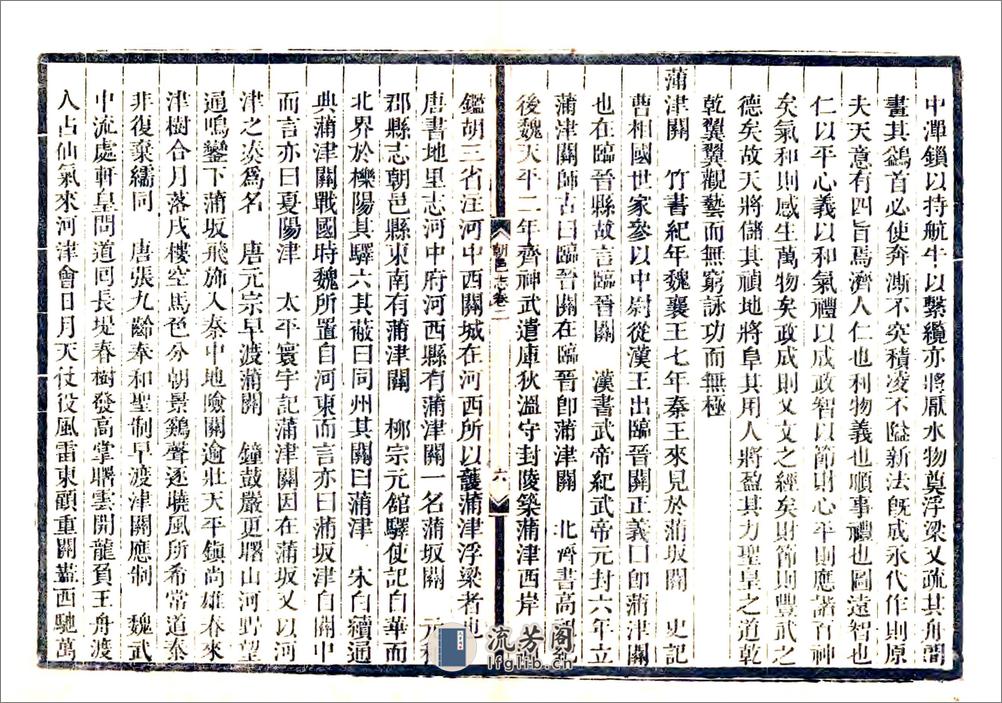 中潬鎖以持航牛以繫纜亦將厭水物奠浮梁又疏其舟間
畫其鷁首必使奔澌不突積凌不隘新法既成永代作則原
夫天意有四旨焉濟人仁也利物義也順事禮也圖遠智也
仁以平心義以和氣禮以成政智以節財心平則應諸百神
矣氣和則感生萬物矣政成則乂文之經矣財節則豐武之
德矣故天將儲其禎地將阜其用人將盈其力聖皇之道乾
乾翼翼觀藝而無窮詠功而無極
蒲津關 竹書紀年魏襄王七年秦王來見於蒲坂關 史記
曹相國世家參以中尉從漢王出臨晉關正義曰即蒲津關
也在臨晉縣故言臨晉關 漢書武帝紀武帝元封六年立
蒲津關師古曰臨晉關在臨晉卽蒲津關 北齊書高祖
後魏天平二年齊神武遣庫狄溫守封陵築蒲津西岸
朝邑志卷二
六
鑑胡三省注河中西關城在河西所以護蒲津浮梁者也
唐書地里志河中府河西縣有蒲津關一名蒲坂關 元和
郡縣志朝邑縣東南有蒲津關 柳宗元館驛使記自華而
北界於櫟陽其驛六其蔽曰同州其關曰蒲津 宋白續通
典蒲津關戰國時魏所置自河東而言亦曰蒲坂津自關中
而言亦曰夏陽津 太平寰宇記蒲津關因在蒲坂又以河
津之湊爲名 唐元宗早渡蒲關 鐘鼓嚴更曙山河野望
通鳴鑾下蒲坂飛旆入秦中地險關逾壯天平鎮尚雄春來
津樹合月落戍樓空馬色分朝景鷄聲逐曉風所希常道泰
非復棄繻同 唐張九齡奉和聖制早渡津關應制 魏武
中流處軒皇問道回長堤春樹發高掌曙雲開龍負王舟渡
人占仙氣來河津會日月天仗役風雷東顧重關蓋西馳萬
流芳阁
lfglib.cn